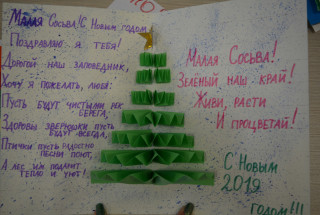 Малая Сосьва! С Новым годом!
Поздравляю я тебя!
Дорогой наш заповедник,
Хочу я пожелать, любя:
Пусть будут чистыми рек
берега,
Здоровы зверюшки пусть
будут всегда,
Птички пусть радостно
песни поют,
А лес им подарит
тепло и уют!
Малая Сосьва!
Зелёный наш край!
Живи, расти
И процветай!
С Новым
2019
годом!!!